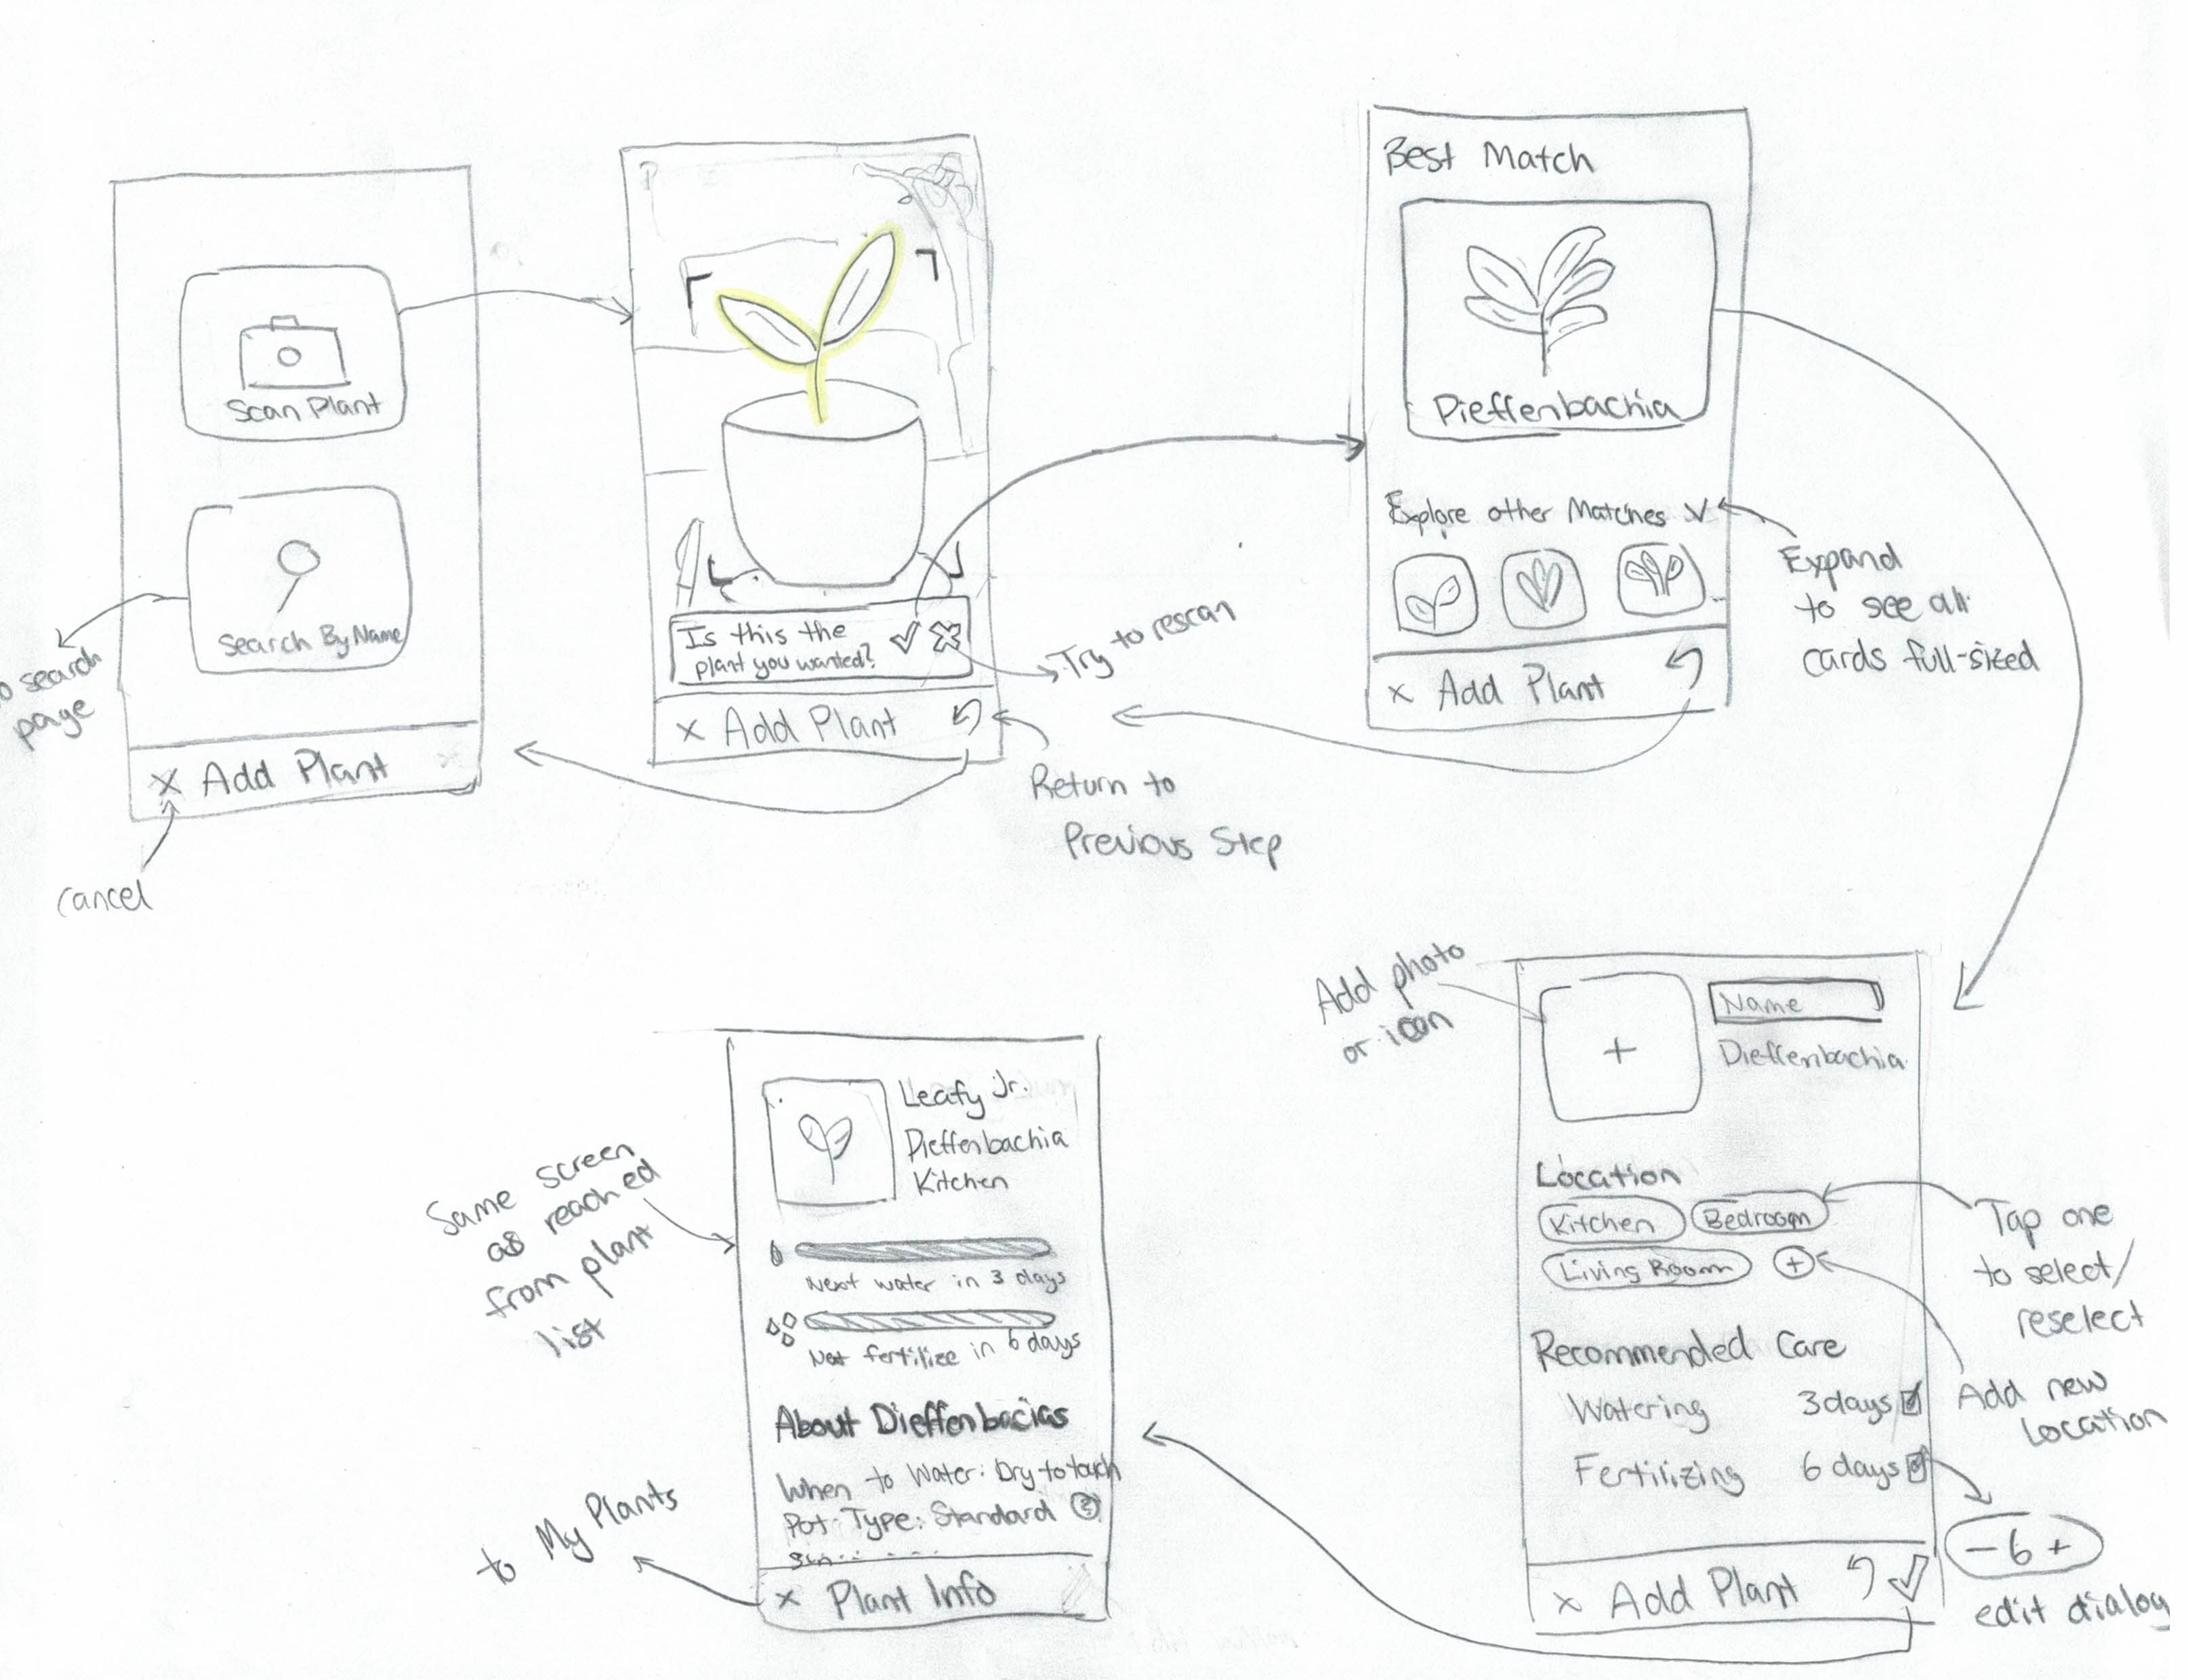 Scan Plant
Search By Name
o search
page
X Add Plant
cancel
Is this the
plant you wanted?
Try to rescan
X Add Plant
Return to
Previous Step
Best Match
Dieffenbachia
Explore other Matches
Expand
to see all
cards full-sized
X Add Plant
Add photo
or icon
+
Name
Dieffenbachia
Location
Kitchen Bedroom
Living Room +
Tap one
to select/
reselect
Add new
Location
Recommended Care
Watering 3 days
Fertilizing 6 days
- 6 +
edit dialog
X Add Plant
Same screen
as reached
from plant
list
Leafy Jr.
Dieffenbachia
Kitchen
Next water in 3 days
Next fertilize in 6 days
About Dieffenbacias
When to Water: Dry to touch
Pot Type: Standard ?
X Plant Info
to My Plants